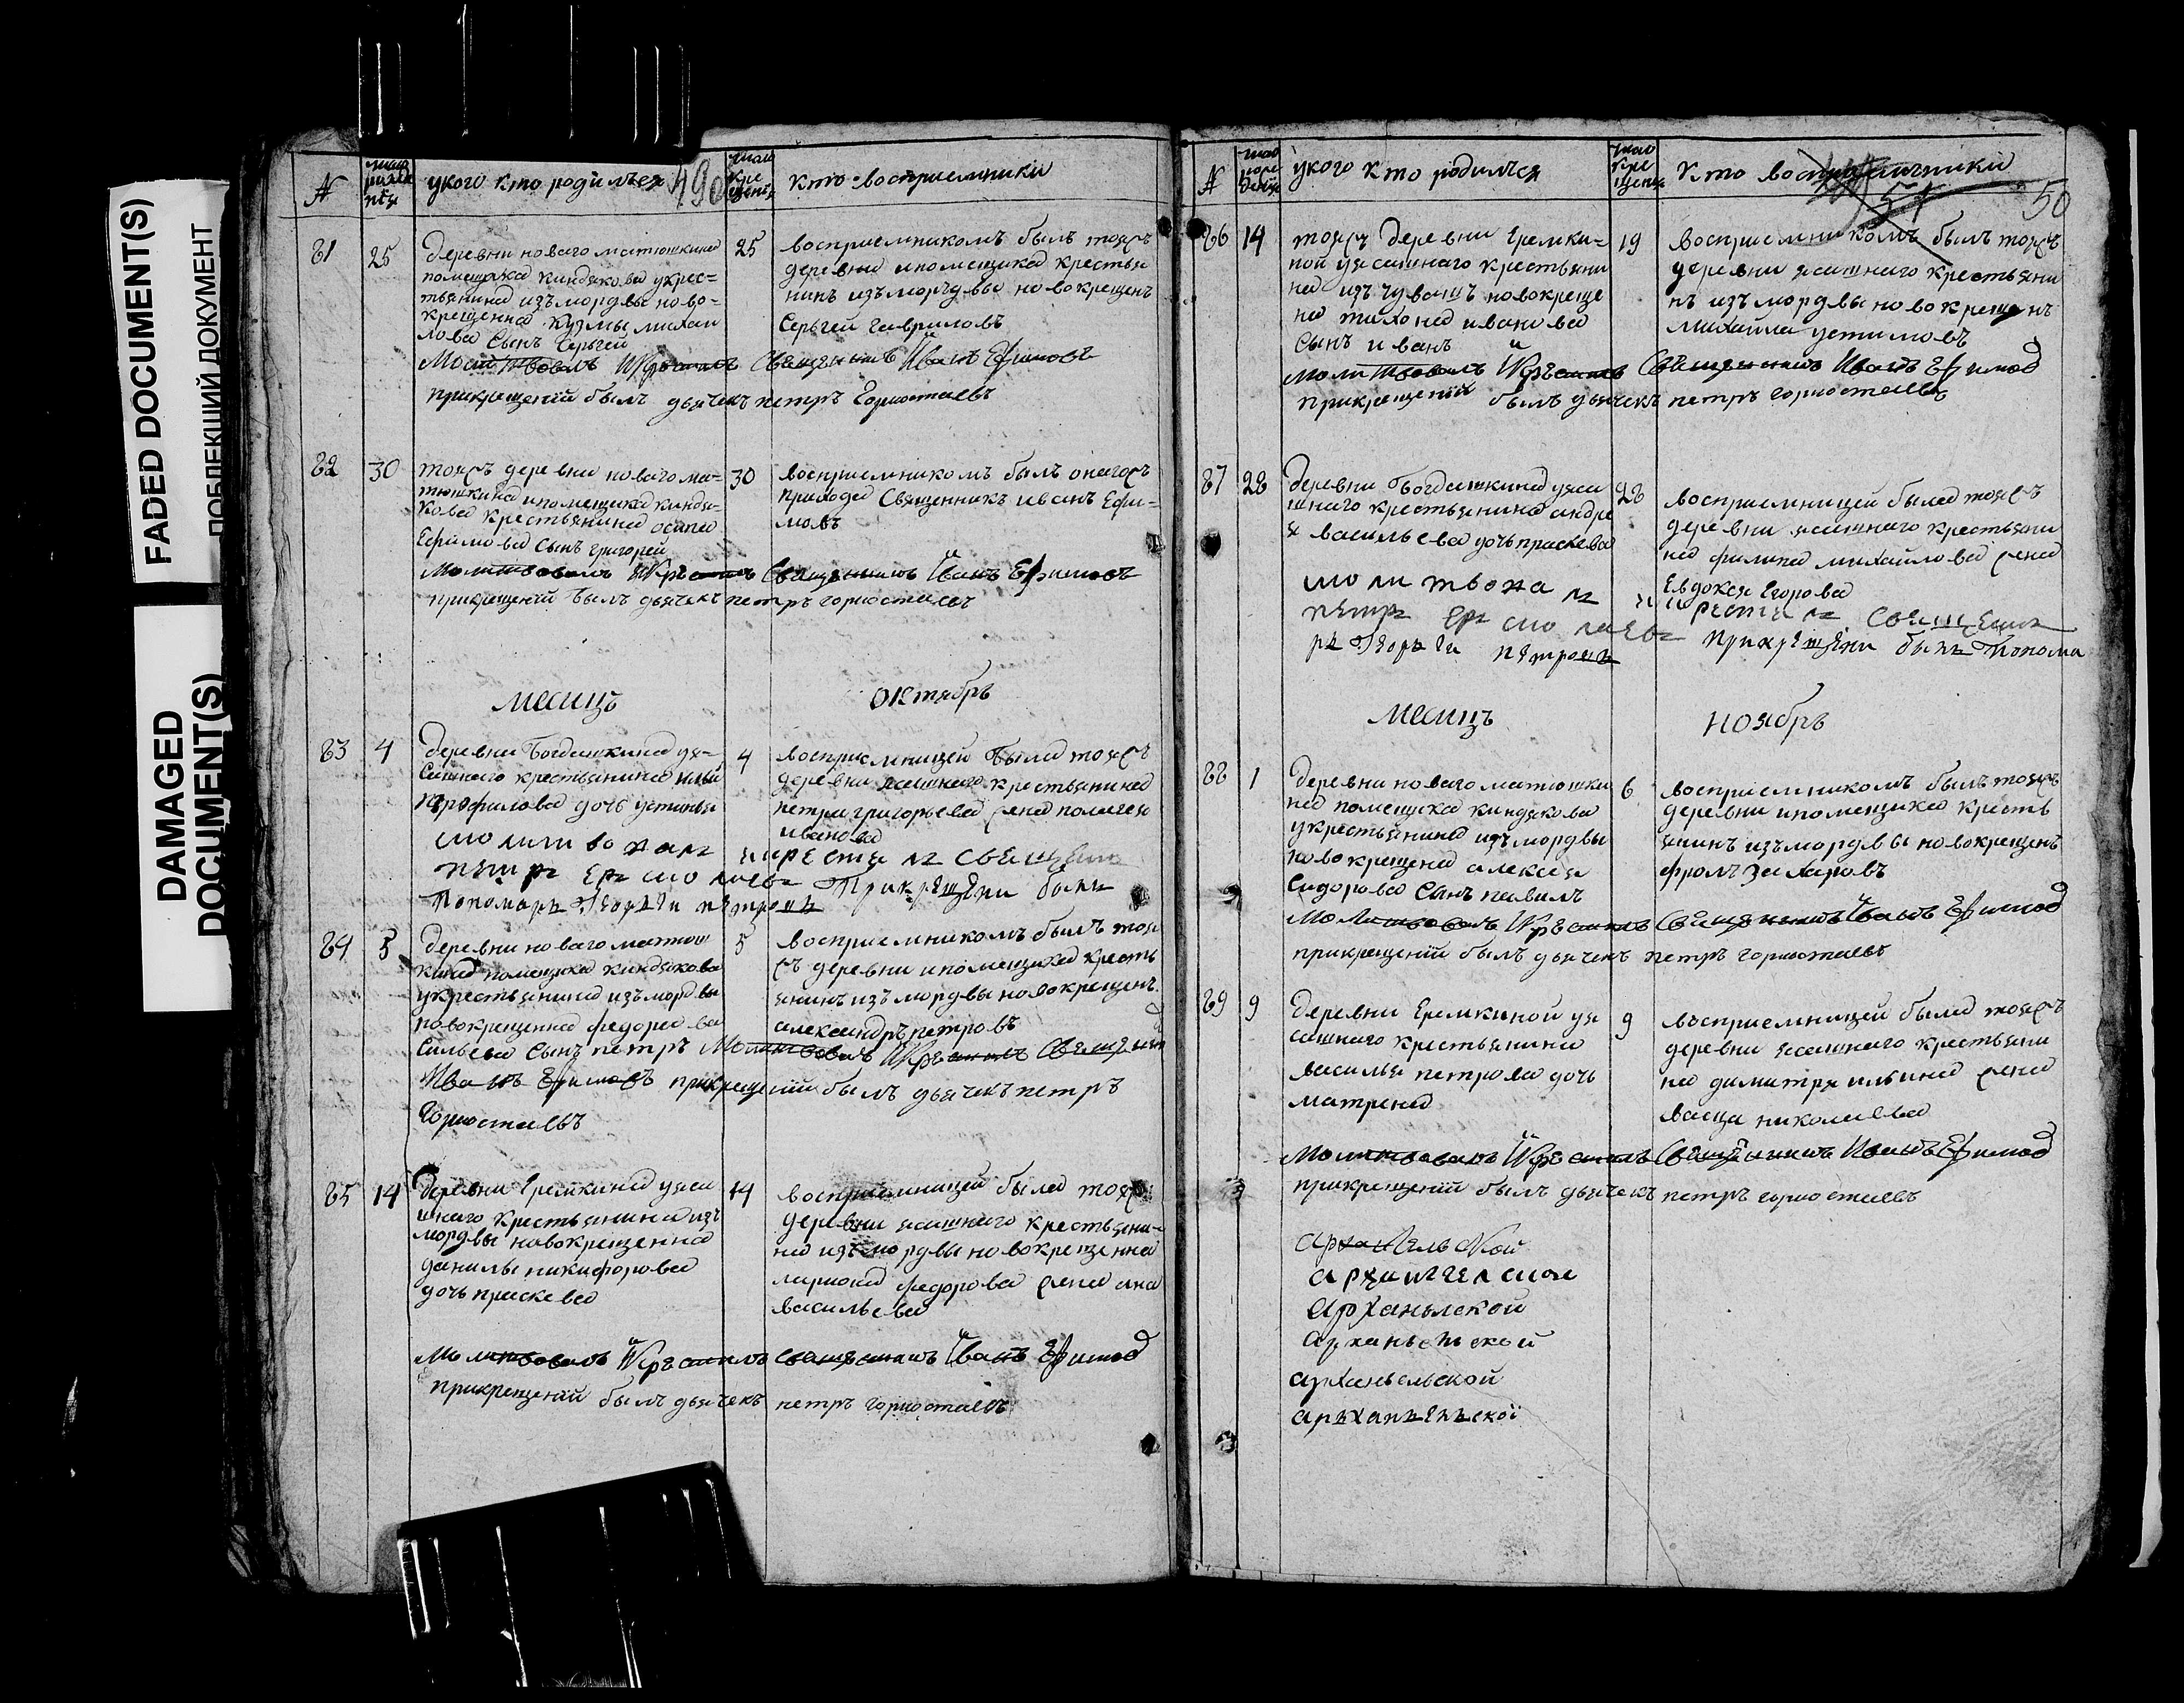 FADED DOCUMENT(S)
ПОБЛЕКШИЙ ДОКУМЕНТ
DAMAGED
DOCUMENT(S)
№
укого кто родилъся
490
кто восприемники
81
25
деревни новаго матюшкина
помещика киндякова укрес-
тьянина изъ мордвы ново-
крещенна Кузмы михаи
лова Сынъ Сергей
25
восприемникомъ былъ тояжъ
деревни ипомещика крестья
нинъ изъ мордвы новокрещенъ
Сергей Гавриловъ
Молитвовалъ ИКрестилъ Священникъ Иванъ Ефимовъ
прикрещенїи былъ дьячекъ петръ Горностаевъ
82
30
тояжъ деревни новаго ма-
тюшкина ипомещика киндя-
кова крестьянина осипа
Ефимова Сынъ григорей
30
восприемникомъ былъ онагожъ
прихода Священникъ иванъ Ефи-
мовъ
Молитвовалъ ИКрестилъ Священникъ Иванъ Ефимовъ
прикрещенїи былъ дьячекъ петръ горностаевъ
месицъ
октябрь
83
4
деревни Богдашкина уя-
сашнаго крестьянина ильи
профилова дочь устинья
4
восприемницей была тояжъ
деревни ясашнаго крестьянина
петра григорьева жена полагея
иванова
молитвовалъ икрестилъ свещеникъ
петръ ермолаевъ Прикрещени былъ
Пономарь Георгеи петровъ
84
5
деревни новаго матюш
кина помещика киндякова
укрестьянина изъ мордвы
новокрещенна федора ва
сильева Сынъ петръ
5
восприемникомъ былъ тоя
жъ деревни ипомещика кресть
янинъ изъ мордвы новокрещенъ
александръ петровъ
Молитвовалъ ИКрестилъ Священикъ
Иванъ Ефимовъ прикрещенїи былъ дьячекъ петръ
Горностаевъ
85
14
Деревни Еремкина уяса
шнаго крестьянина изъ
мордвы новокрещенна
данилы никифорова
дочь праскева
14
восприемницей была тояжъ
деревни ясашнаго крестьяни-
на изъ мордвы новокрещенна
лариона федорова жена ана
васильева
Молитвовалъ ИКрестилъ священникъ Иванъ Ефимовъ
прикрещенїи былъ дьячекъ петръ горностаевъ
№
укого кто родился
кто восприемники
51
50
86
14
тояжъ деревни Еремки-
ной уясашнаго крестьяни
на изъ чувашъ новокреще
на тихона иванова
Сынъ иванъ
19
восприемникомъ былъ тояжъ
деревни ясашнаго крестьяни
нъ изъ мордвы новокрещенъ
михайла устимовъ
Молитвовалъ ИКрестилъ Священникъ Иванъ Ефимовъ
прикрещенїи былъ дьячекъ петръ горностаевъ
87
28
деревни Богдашкина уяса
шнаго крестьянина андре
я васильева дочь праскева
28
восприемницей была тояжъ
деревни ясашнаго крестьяни
на филипа михайлова жена
Евдокея Егорова
молитвовалъ икрестилъ свещеникъ
петръ ермолаевъ прикрещени былъ Понома
рь Георъги петровъ
месицъ
ноябрь
88
1
деревни новаго матюшки
на помещика киндякова
укрестьянина изъ мордвы
новокрещена алексея
Сидорова Сынъ павилъ
6
восприемникомъ былъ тояжъ
деревни ипомещика кресть
янинъ изъ мордвы новокрещенъ
фролъ Захаровъ
Молитвовалъ ИКрестилъ Священникъ Иванъ Ефимовъ
прикрещенїи былъ дьячекъ петръ горностаевъ
89
9
деревни Еремкиной уя
сашнаго крестьянина
василья петрова дочь
матрена
9
въсприемницей была тояжъ
деревни ясашнаго крестьяни
на димитрия ильина жена
васца николаева
Молитвовалъ ИКрестилъ Священникъ Иванъ Ефимовъ
прикрещенїи былъ дьячекъ петръ горностаевъ
архангельской
архангелской
арханьлской
арханьельской
арханьельской
арьханьельской